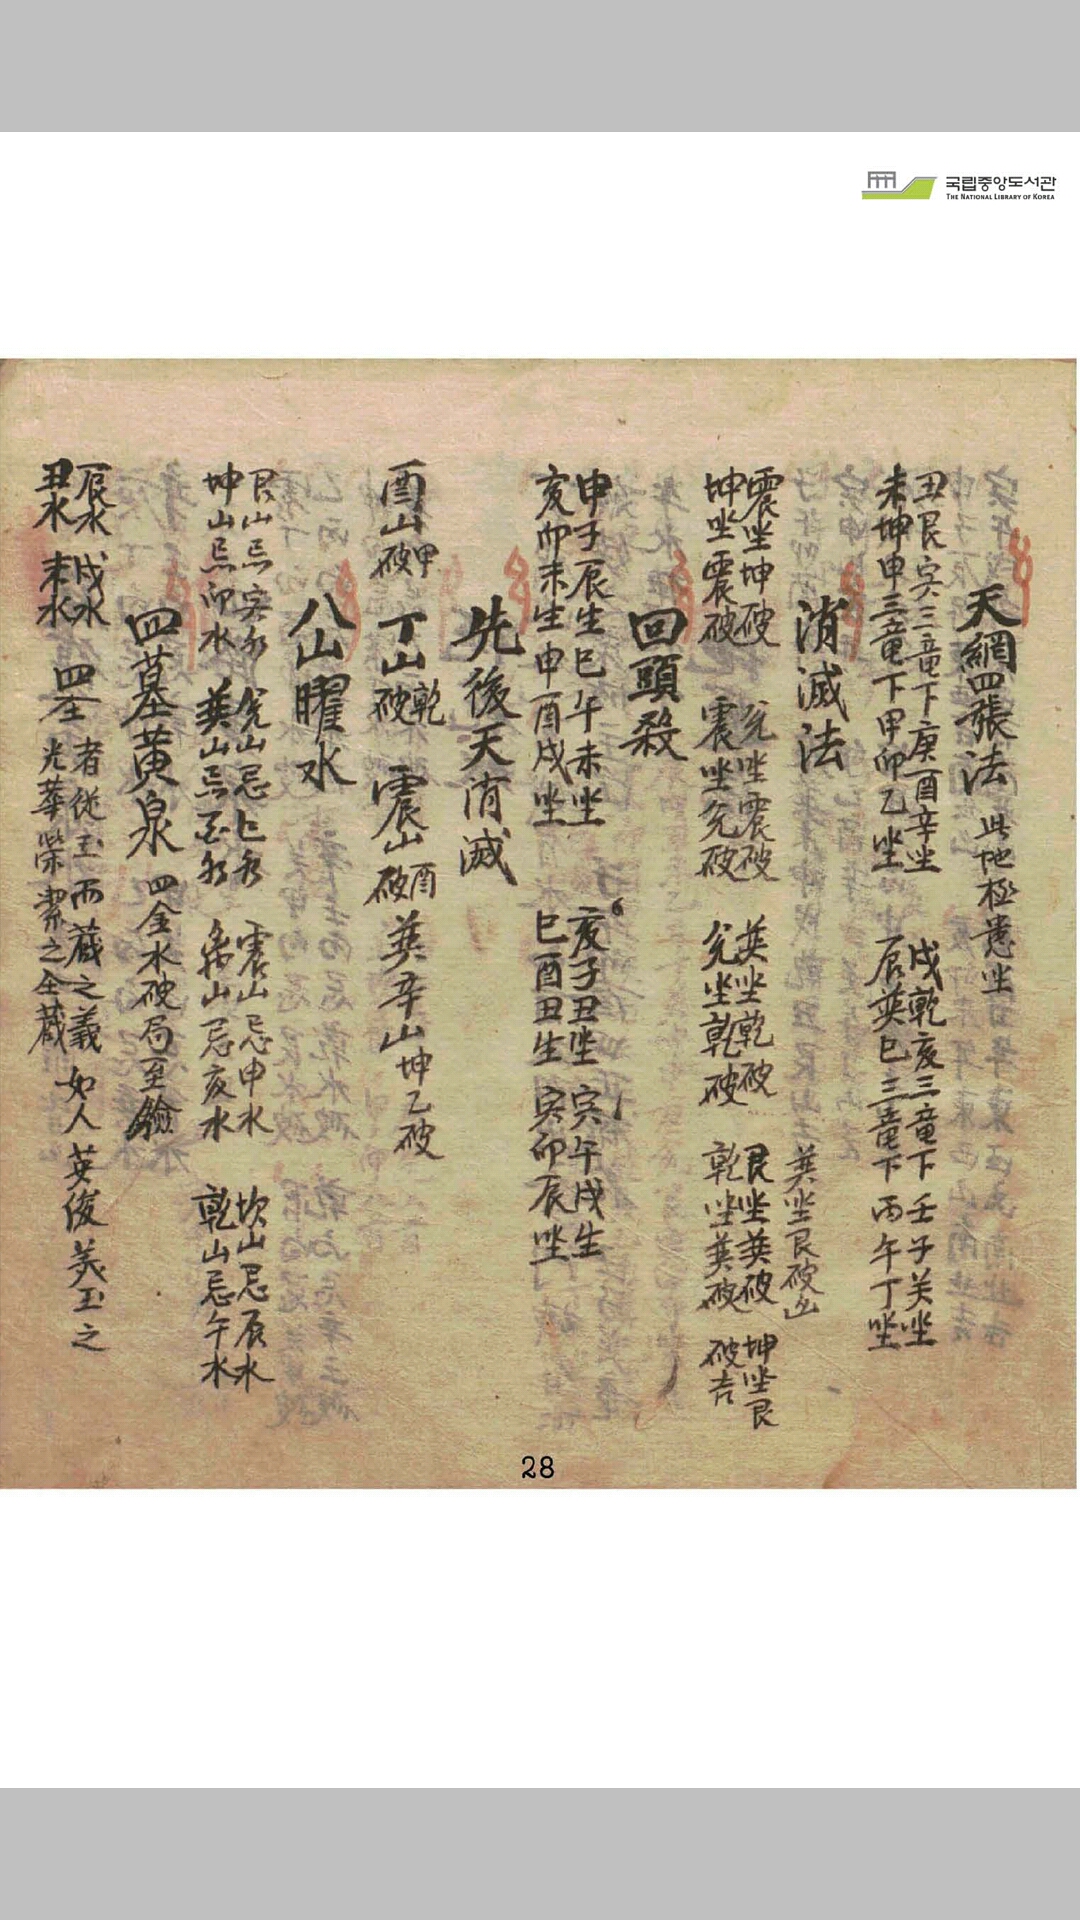 국립중앙도서관
THE NATIONAL LIBRARY OF KOREA
天網四張法 此地極㤪坐
丑艮寅三竜下庚酉辛坐 戌乾亥三竜下壬子癸坐
未坤申三竜下甲卯乙坐 辰巽巳三竜下丙午丁坐
消滅法 巽坐艮破凶
震坐坤破 兌坐震破 巽坐乾破 艮坐巽破 坤坐艮
坤坐震破 震坐兌破 兌坐乾破 乾坐巽破 破吉
回頭殺
申子辰生巳午未坐 亥子丑坐 寅午戌生
亥卯未生申酉戌坐 巳酉丑生 寅卯辰坐
先後天消滅
酉山甲破 丁山乾破 震山酉破 巽辛山坤乙破
八山曜水
艮山忌寅水 兌山忌巳水 震山忌申水 坎山忌辰水
坤山忌卯水 巽山忌酉水 离山忌亥水 乾山忌午水
四墓黃泉 四金水破局至鐱
辰水 戌水 者從玉而藏之義如人英俊美玉之
丑水 未水 四 光華榮潔之全藏
28